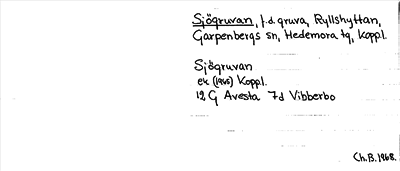 Sjögruvan, f.d. gruva, Ryllshyttan,
Garpenbergs sn, Hedemora tg, Koppl.
Sjögruvan
ek (1965) Koppl.
12 G Avesta 7d Vibberbo
Ch.B. 1968.